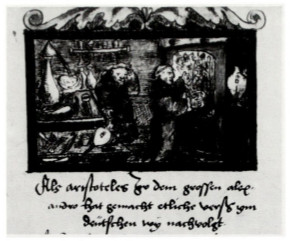 Als aristoteles zo dem grossen alex
andro hat gemacht etliche verss ym
deutschen wy nachvolgt